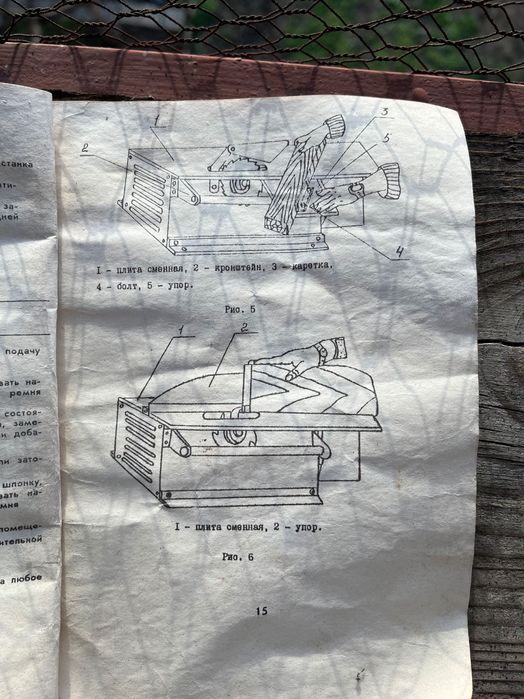 станка
ти-
за-
ней
подачу
вать на-
ремня
состоя-
, заме-
и доба-
ли зато-
шпонку,
вать на-
мня
помеще-
ительной
а любое
1
2
3
5
4
I - плита сменная, 2 - кронштейн, 3 - каретка.
4 - болт, 5 - упор.
Рис. 5
1
2
I - плита сменная, 2 - упор.
Рис. 6
15